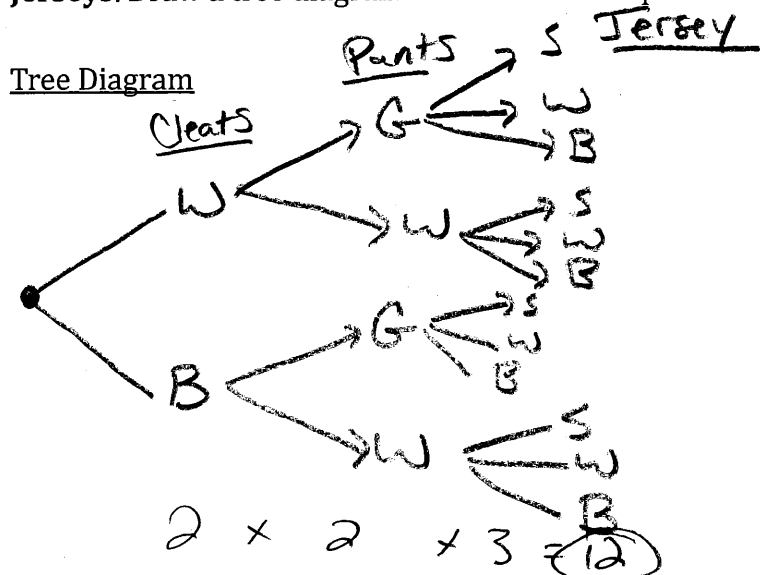 Tree Diagram
Cleats
Pants
Jersey
W
G
S
W
B
W
S
W
B
B
G
S
W
B
W
S
W
B
2 × 2 × 3 = 12